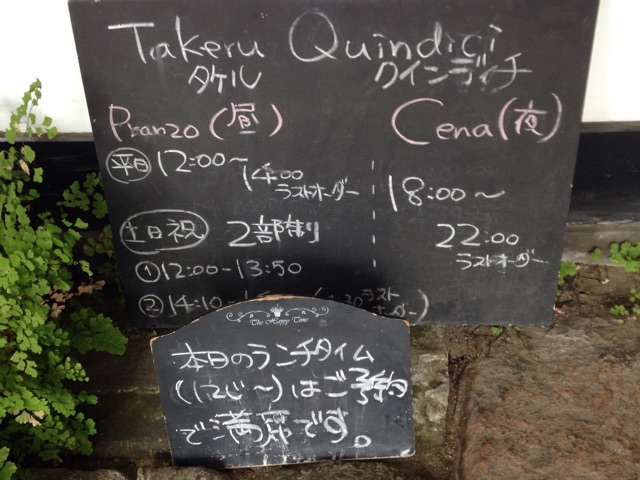 Takeru Quindici
タケル クインディチ
Pranzo(昼)
平日 12:00~
14:00
ラストオーダー
土日祝 2部制
①12:00-13:50
②14:10-
ラスト
ーダー)
Cena(夜)
18:00~
22:00
ラストオーダー
The Happy Time
本日のランチタイム
(12じ~)はご予約
で満席です。